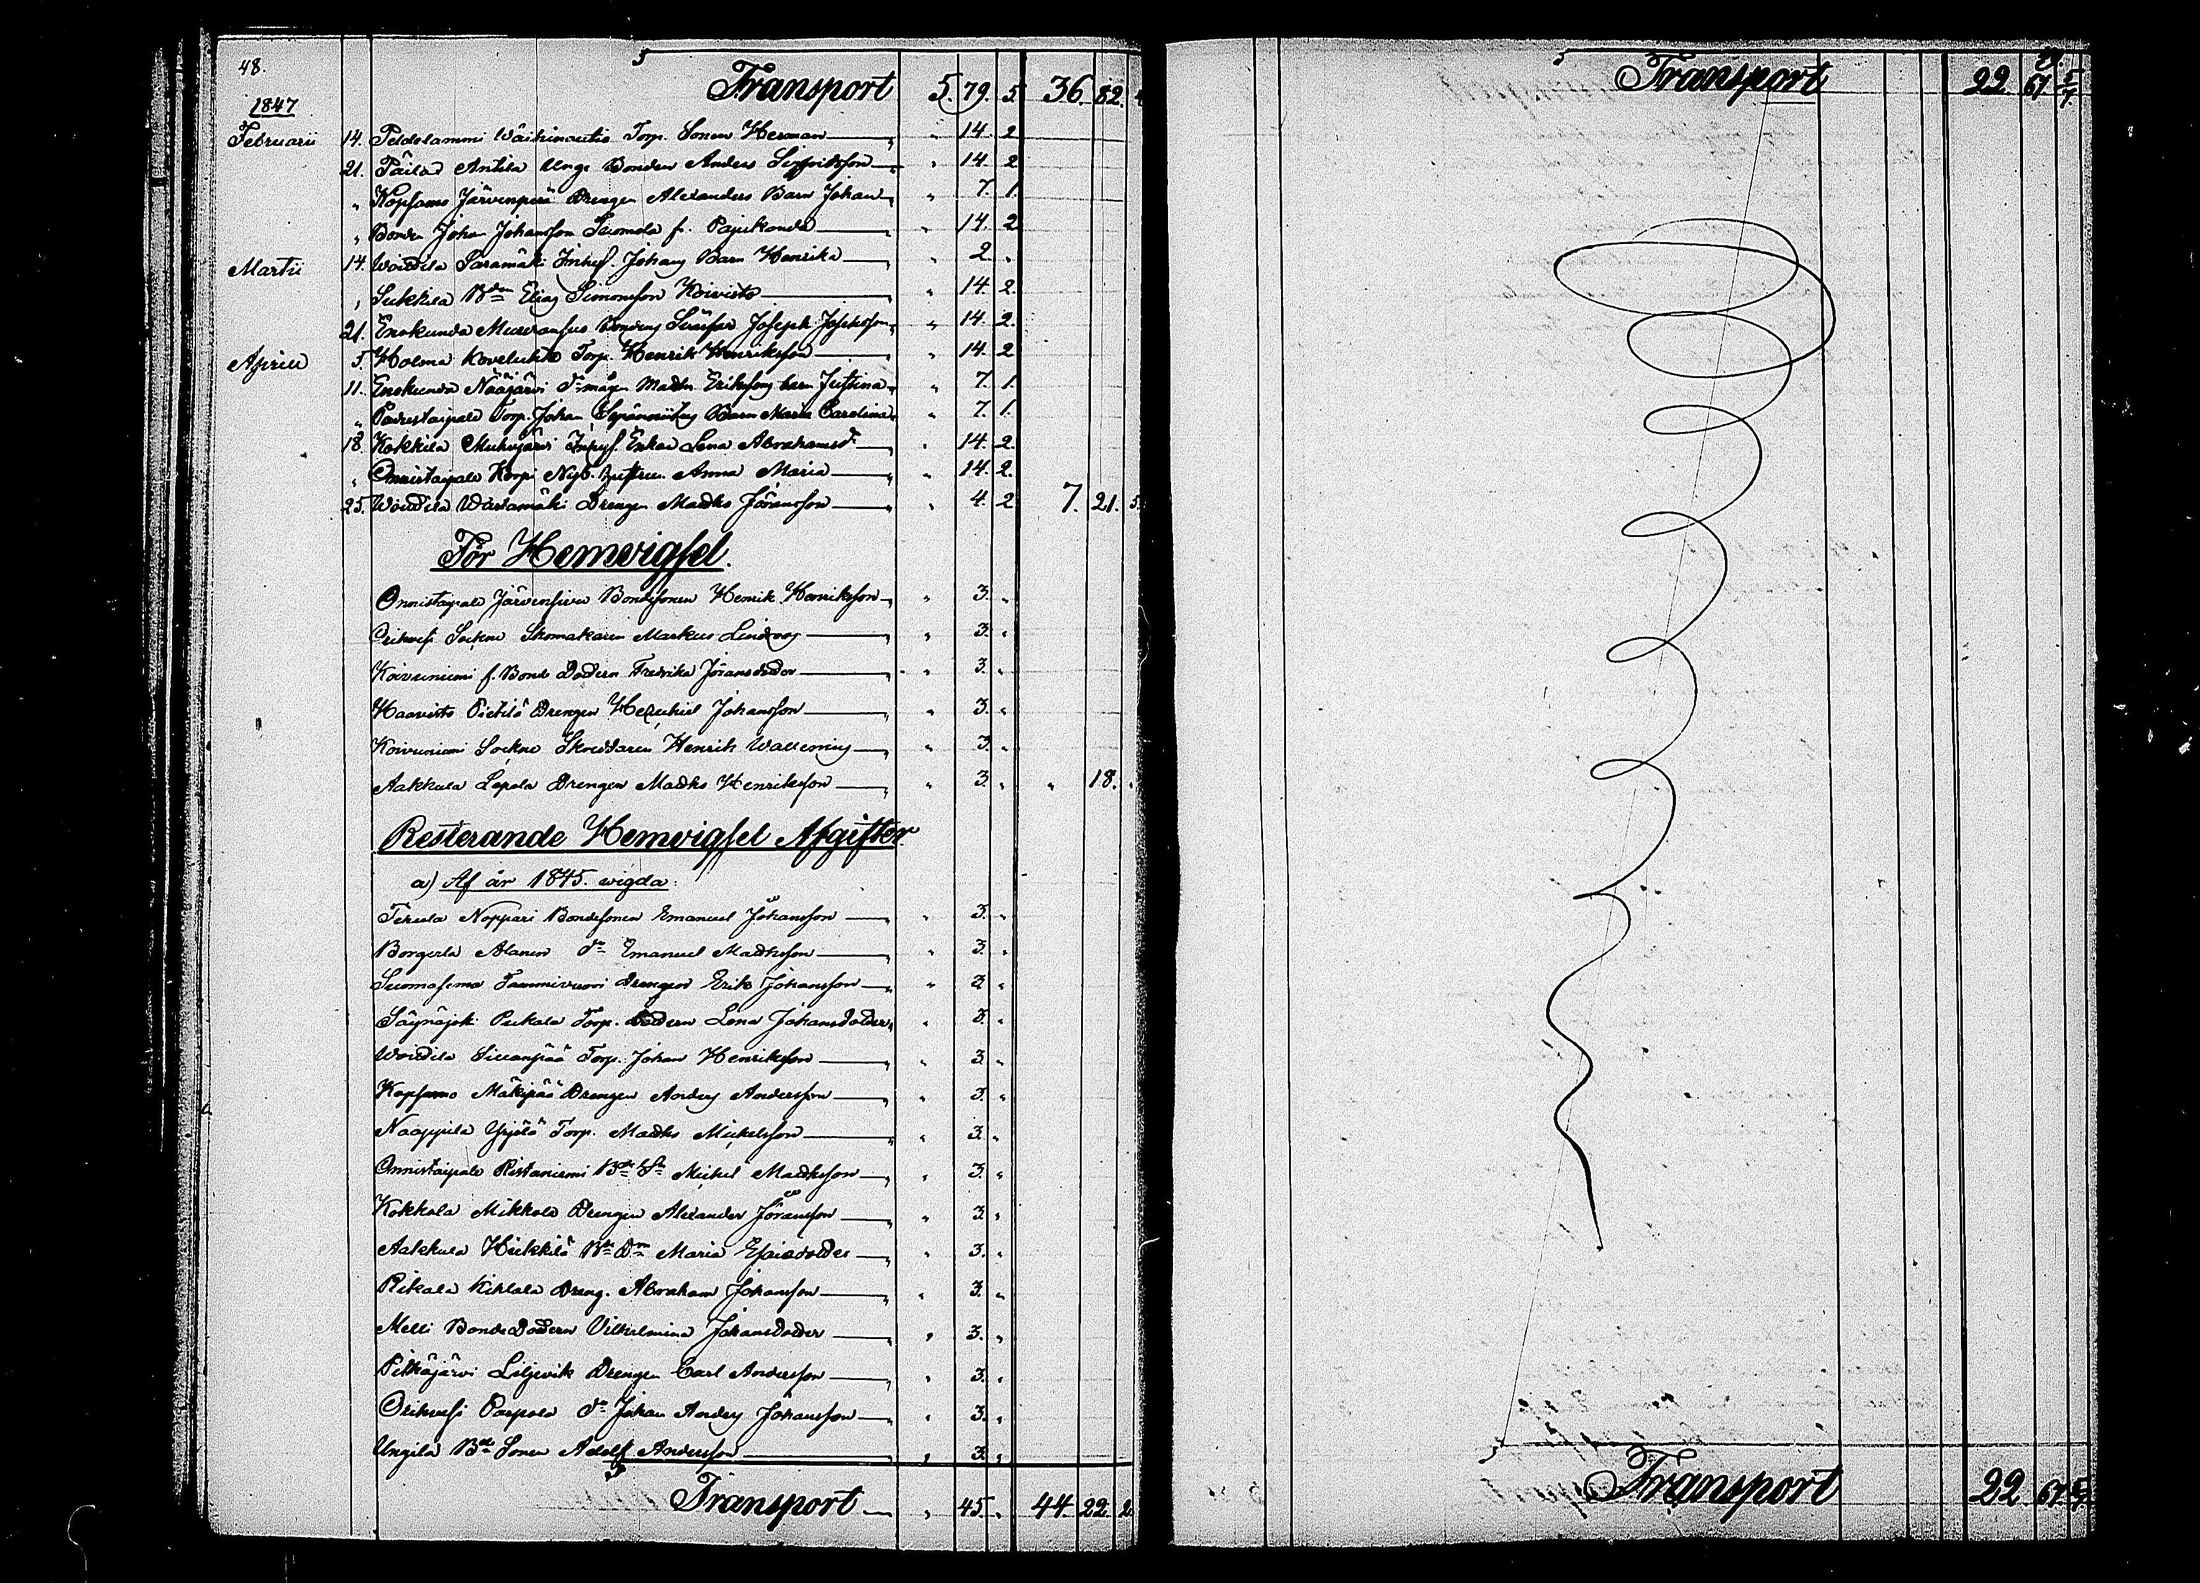 48.
Transport 5. 79. 5. 36. 82.
1847
Februarii 14. Peldolammi Torp. Sonen Herman 14. 2
21. Päilä Antila Unge Bonden Anders Sigfridsson 14. 2
" Kopsamo Järvenpää Drengen Alexanders Barn Johan 7. 1.
" Bonden Johan Johansson Suomela fr. 14. 2
Martii 14. Woitila Saramäki Inhys. Johans Barn Henrika 2. "
" Sukkila Bden Elias Simonsson Koivisto 14. 2.
21. Enokunda Joseph Josephsson 14. 2.
Aprill 5. Holma Koveluhta Torp. Henrik Henriksson 14. 2
11. Enokunda Nääjärvi Matts Eriksons barn Justina 7. 1.
" Torp. Johan Barn Maria Carolina 7. 1.
18. Kokkila Inhys. Enkan Lena Abrahamsd. 14. 2.
" Onnistaipale Korpi Nyb. Hustrun Anna Maria 14. 2.
25. Woitila Drengen Matts Jöransson 4. 2 7. 21. 5.
För Hemvigsel.
Onnistaipale Järvensivu Bondesonen Henrik Henriksson " 3. "
Orihvesi Sockne Skomakaren Markus Lindroos " 3. "
Koivuniemi f. Bonde Dottern Fredrika Jöransdotter " 3. "
Haavisto Pietilä Drengen Hezekiel Johansson " 3. "
Koivuniemi Sockne Skreddaren Henrik Wallenius " 3. "
Aakkula Lepola Drengen Matts Henriksson " 3. " " 18. "
Resterande Hemvigsel Afgifter.
a) Af år 1845. wigda:
Terula Noppari Bondesonen Emanuel Johansson " 3. "
Borgerla Alanen do Emanuel Mattsson " 3. "
Suomasema Tammivuori Drengen Erik Johansson " 3. "
Säynäjoki Pukala Torp. Dottern Lena Johansdotter " 3. "
Woitila Sillanpää Torp. Johan Henriksson " 3. "
Kopsamo Mäkipää Drengen Anders Andersson " 3. "
Naappila Yrjölä Torp. Matts Mickelsson " 3. "
Onnistaipale Ristaniemi Bde Sn Michel Mattsson " 3. "
Kokkola Mikkola Drengen Alexander Jöransson " 3. "
Aakkula Heikkilä Bde Dn Maria Esaiedotter " 3. "
Pitkala Kihlala Dreng. Abraham Johansson " 3. "
Melli BondeDottern Vilhelmina Johansdotter " 3. "
Pitkäjärvi Liljevik Drengen Carl Andersson " 3. "
Orihvesi Parpola do Johan Anders Johansson " 3. "
Ungila Bde Sonen Adolf Andersson " 3. "
Transport " 45. " 44. 22. 2.
Transport 22 67 5/7
Transport 22 67 5/7